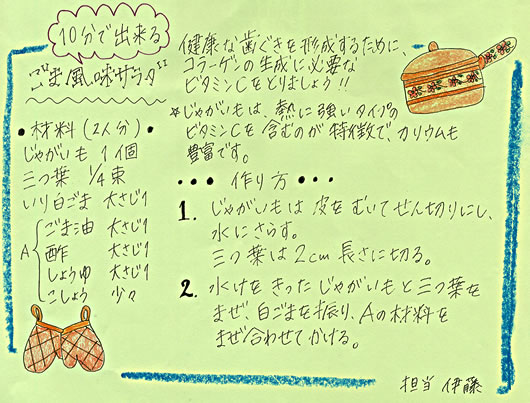 10分で出来る
ごま風味サラダ
健康な歯ぐきを形成するために、
コラーゲンの生成に必要な
ビタミンCをとりましょう!!
*じゃがいもは、熱に強いタイプの
ビタミンCを含むのが特徴で、カリウムも
豊富です。
・材料(2人分)・
じゃがいも 1個
三つ葉 1/4束
いり白ごま 大さじ1
A
ごま油 大さじ1
酢 大さじ1
しょうゆ 大さじ1
こしょう 少々
・・・作り方・・・
1. じゃがいもは皮をむいてせん切りにし、
水にさらす。
三つ葉は2cm長さに切る。
2. 水けをきったじゃがいもと三つ葉を
まぜ、白ごまを振り、Aの材料を
まぜ合わせてかける。
担当 伊藤